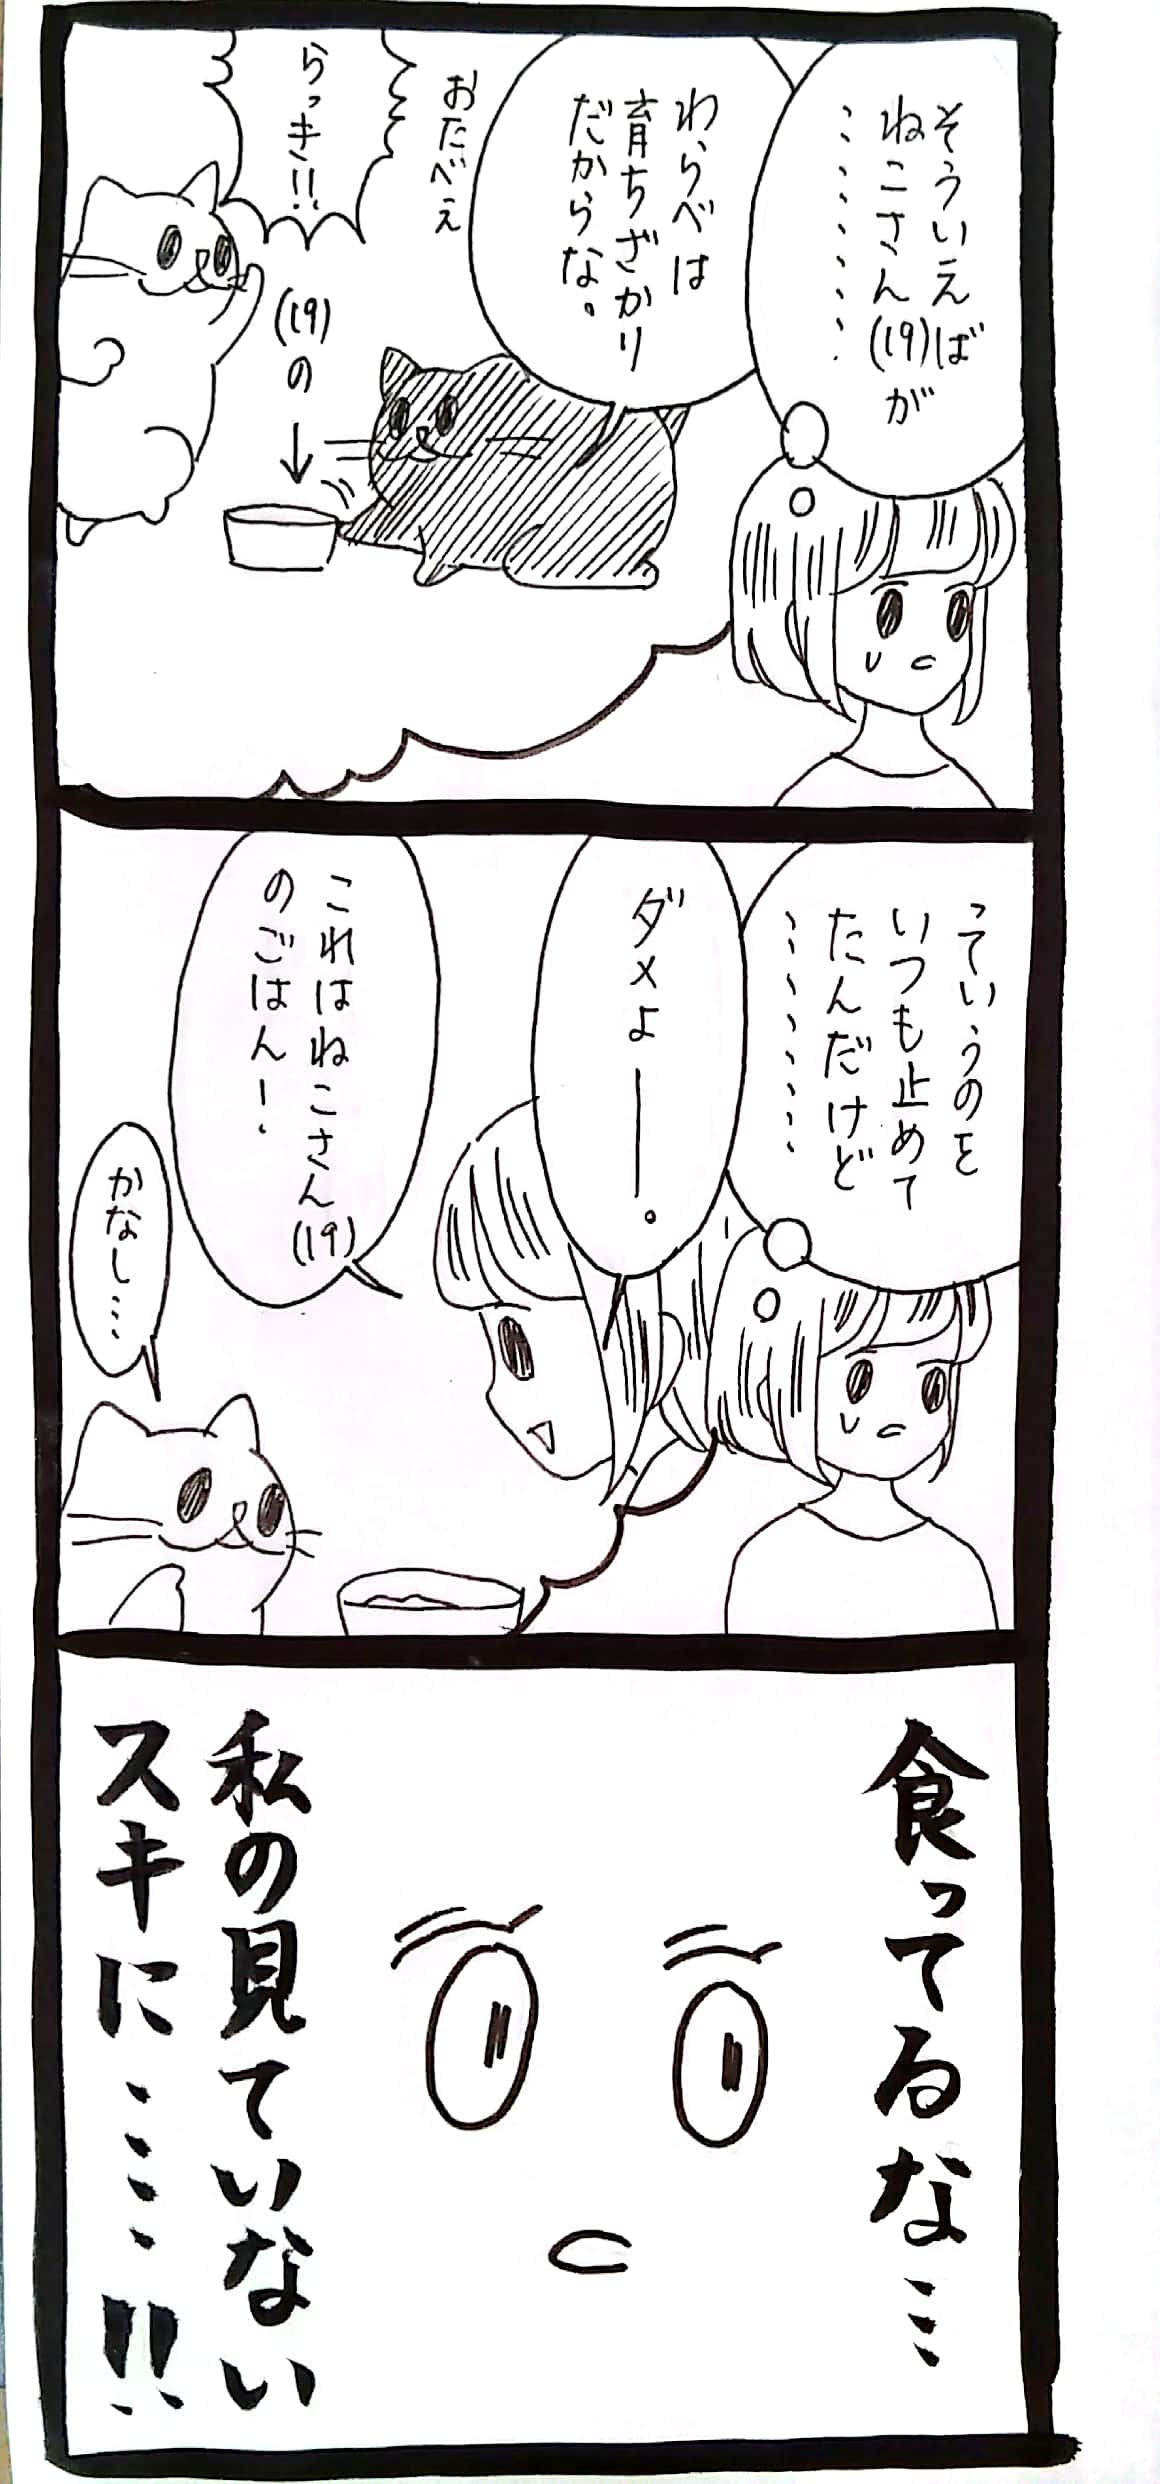 そういえば
ねこさん(19)が
…………
わらべは
育ちざかり
だからな。
おたべえ
らっき!!
(19)の→
っていうのを
いつも止めて
たんだけど
…………
ダメよ――。
これはねこさん(19)
のごはん!
かなし…
食ってるな…
私の見ていない
スキに……!!